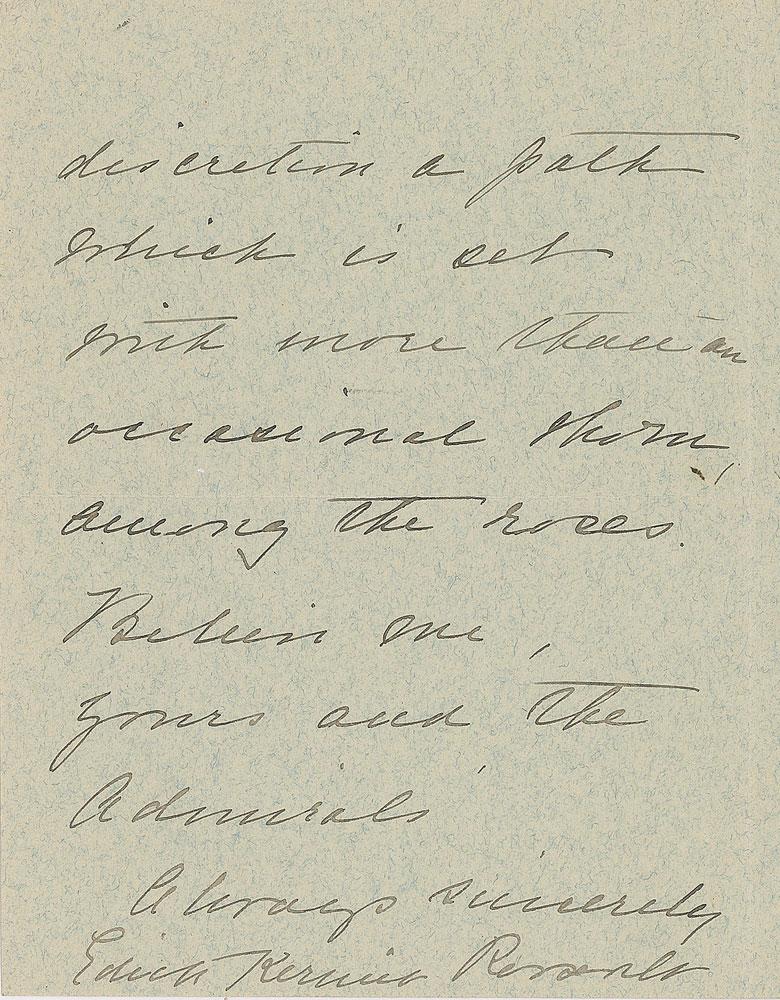 discretion a path
which is set
with more than an
occasional thorn,
among the roses.
Believe me,
yours and the
Admirals'
Always sincerely
Edith Kermit Roosevelt